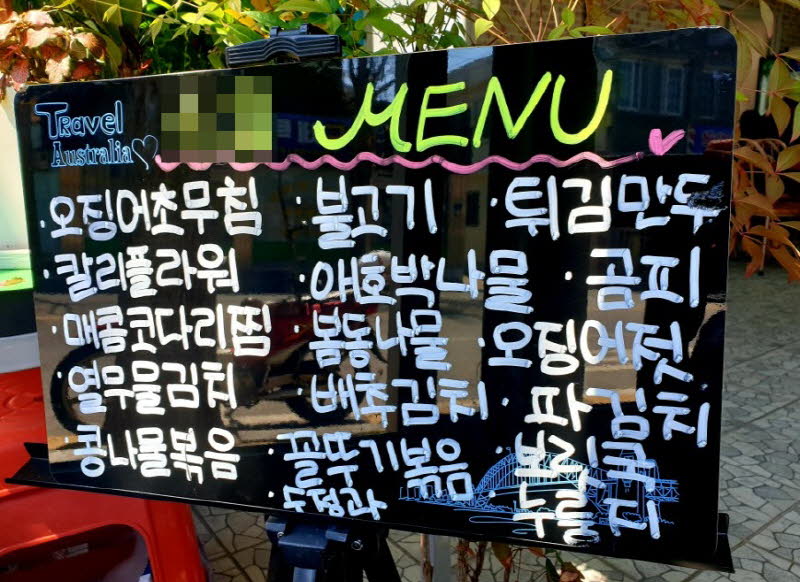 Travel
Australia
MENU
· 오징어초무침
· 칼리플라워
· 매콤코다리찜
· 열무물김치
· 콩나물볶음
· 불고기
· 애호박나물
· 봄동나물
· 배추김치
· 꼴뚜기볶음
· 튀김만두
· 곰피
· 오징어젓
· 파김치